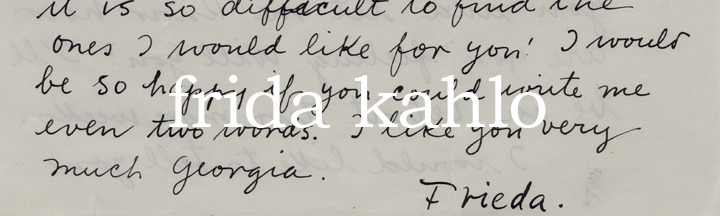 it is so difficult to find the
ones I would like for you! I would
be so happy if you could write me
frida kahlo
even two words. I like you very
much Georgia.
Frieda.